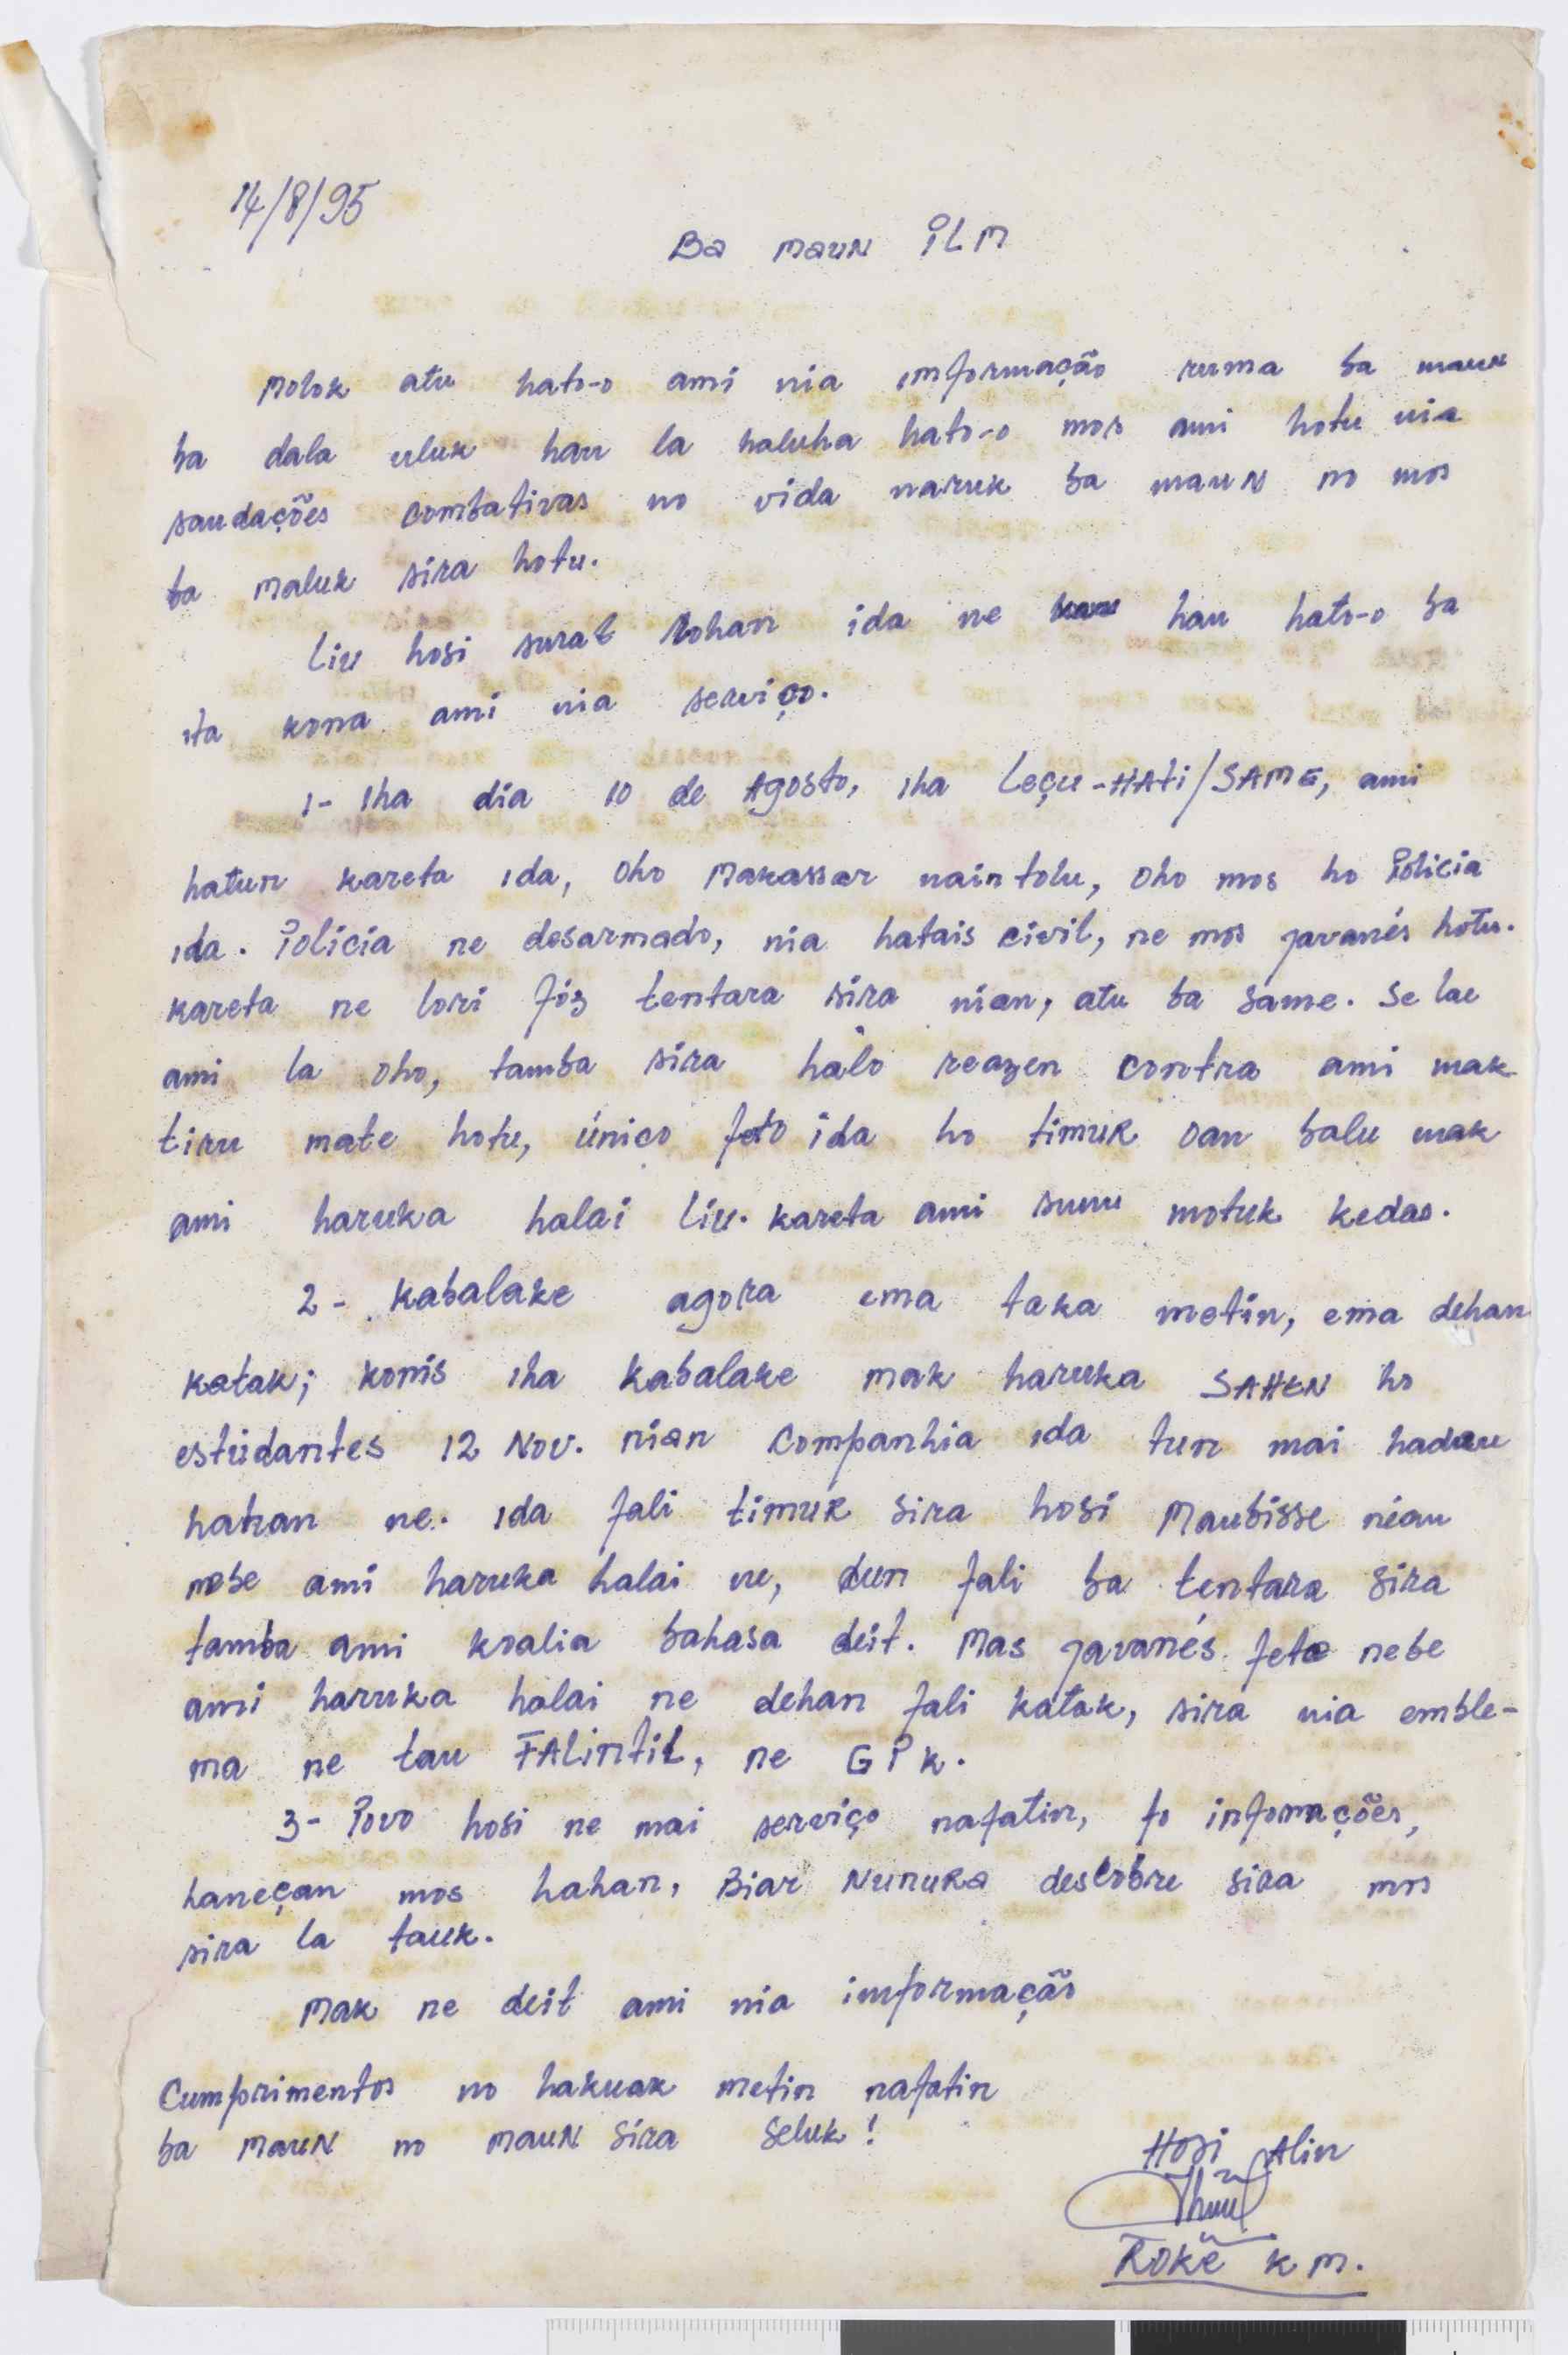 14/8/95
Ba maun ILM
Molok atu hato-o ami nia imformação ruma ba maun
ba dala uluk hau la haluha hato-o mos ami hotu nia
saudações combativas no vida naruk ba maun no mos
ba maluk sira hotu.
Liu hosi surat lohan ida ne hau hato-o ba
ita kona ami nia serviço.
1- Iha dia 10 de Agosto, iha Leçu-HAti/SAME, ami
hatun kareta ida, oho Makassar nain tolu, oho mos ho Policia
ida. Policia ne desarmado, nia hatais civil, ne mos javanés hotu.
kareta ne lori fós tentara sira nian, atu ba same. Se lae
ami la oho, tamba sira halo reazen contra ami mak
tiru mate hotu, único feto ida ho timur oan balu mak
ami haruka halai liu. kareta ami sunu motuk kedas.
2- kabalake agora ema taka metin, ema dehan
katak; komis iha kabalake mak haruka SAHEN ho
estudantes 12 Nov. nian Companhia ida tun mai hadau
hahan ne. ida fali timur sira hosi Maubisse néan
nebe ami haruka halai ne, dun fali ba tentara sira
tamba ami koalia bahasa deit. Mas javanés feto nebe
ami haruka halai ne dehan fali katak, sira nia emble-
ma ne tau FALintil, ne GPK.
3- Povo hosi ne mai serviço nafatin, fo infomações,
haneçan mos hahan, Biar Nunura descobre sira mos
sira la tauk.
Mak ne deit ami nia imformação
Cumprimentos no hakuak metin nafatin
ba maun no maun sira seluk!
Hosi Alin
Roke K M.